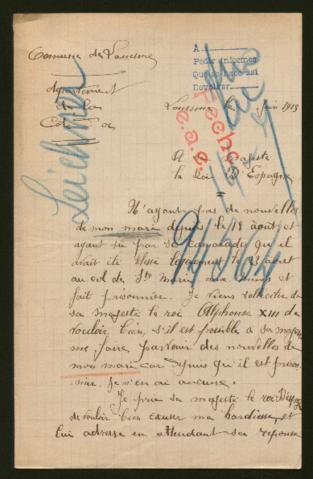 Commune de Louesme
A
Pedir informes
Devolver
Département
de la
Côte d'Or
Louesme le Juin 1915
Hecho
Leichner
A Sa Majesté
le Roi d'Espagne
N'ayant pas de nouvelles
de mon mari depuis le 18 août et
ayant su par ses camarades qu'il
avait été blessé légèrement le 18 août
au col de Ste Marie aux mines et
fait prisonnier. Je viens solliciter de
sa majesté le roi Alphonse XIII de
vouloir bien, s'il est possible à sa majesté
me faire parvenir des nouvelles de
mon mari car depuis qu'il est prison
nier, je n'en ai aucune.
Je prie sa majesté le roi
de vouloir bien excuser ma hardiesse, et
lui adresse en attendant sa réponse